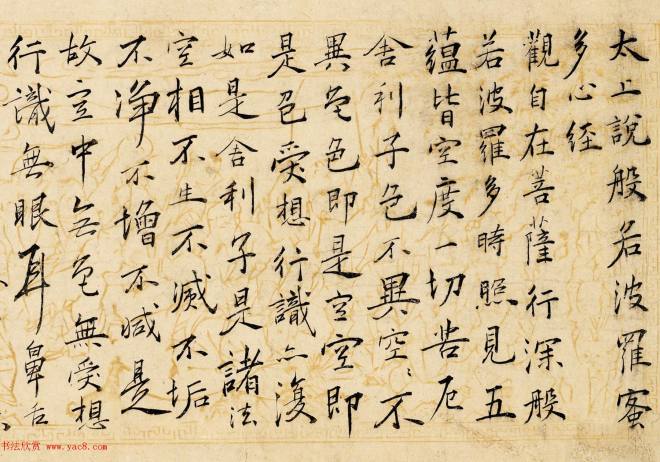 太上說般若波羅蜜
多心経
觀自在菩薩行深般
若波羅多時照見五
蘊皆空度一切苦厄
舍利子色不異空〻不
異色色即是空空即
是色受想行識亦復
如是舍利子是諸法
空相不生不滅不垢
不净不增不減是
故空中无色無受想
行識無眼耳鼻舌
书法欣赏 www.yac8.com